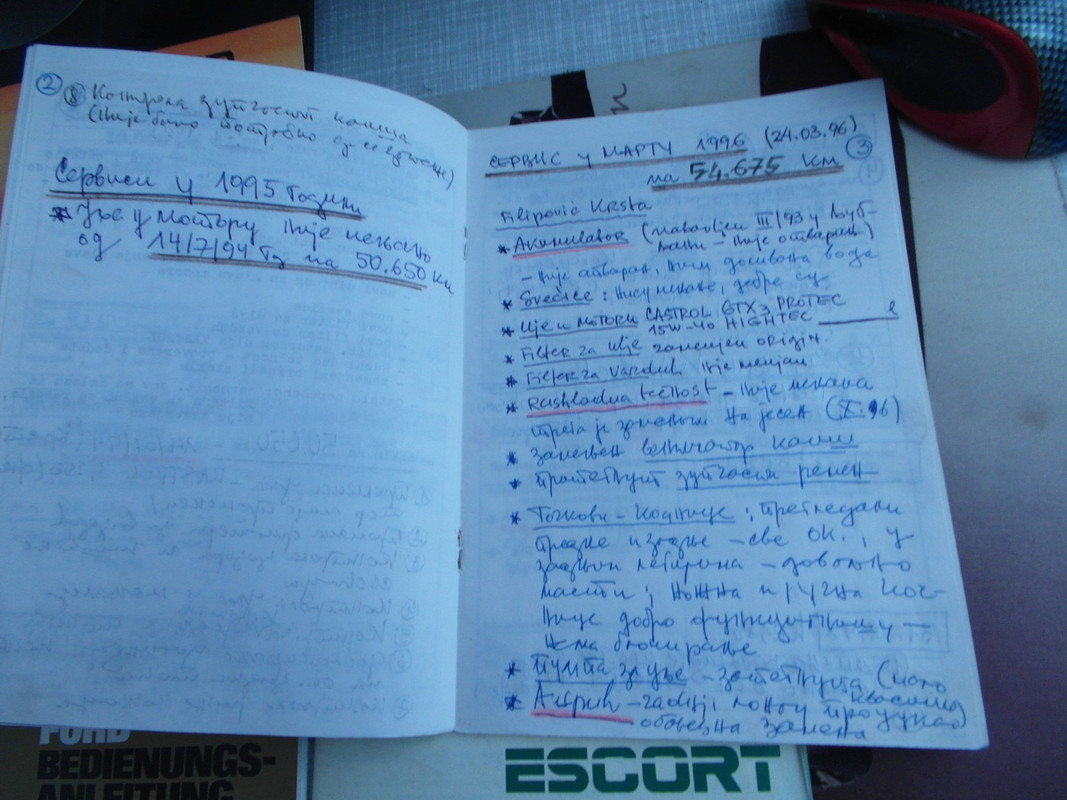 ② ⑧ Контрола зупчастог каиша
(није било потребно
Сервиси у 1995 години
* Уље у мотору није мењано
од 14/7/94 г на 50.650 км
СЕРВИС У МАРТУ 1996 (24.03.96)
③
на 54.675 км
Filipović Krsta
* Akumulator (набављен III/93 у
није отваран)
- није отваран, нит доливена вода
* Svećice: нису мењане, добре су
* Ulje u motoru CASTROL GTX3 PROTEC
15W-40 HIGHTEC
* Filter za ulje zamenjen origin.
* Filter za vazduh није мењан
* Rashladna tečnost - није мењана
треба је заменити на јесен (X.96)
* замењен вентилатор каиш
* притегнут зупчасти ремен
* Точкови - кочнице; прегледани
предње и задње - све ОК., у
задњим лежајима - довољно
масти; ножна и ручна коч-
нице добро функционишу -
нема блокирање
* Пумпа за уље - затегнута (мало
квасила)
* Auspuh - задњи лонац продувао
обавезна замена
FORD
BEDIENUNGS-
ANLEITUNG
ESCORT